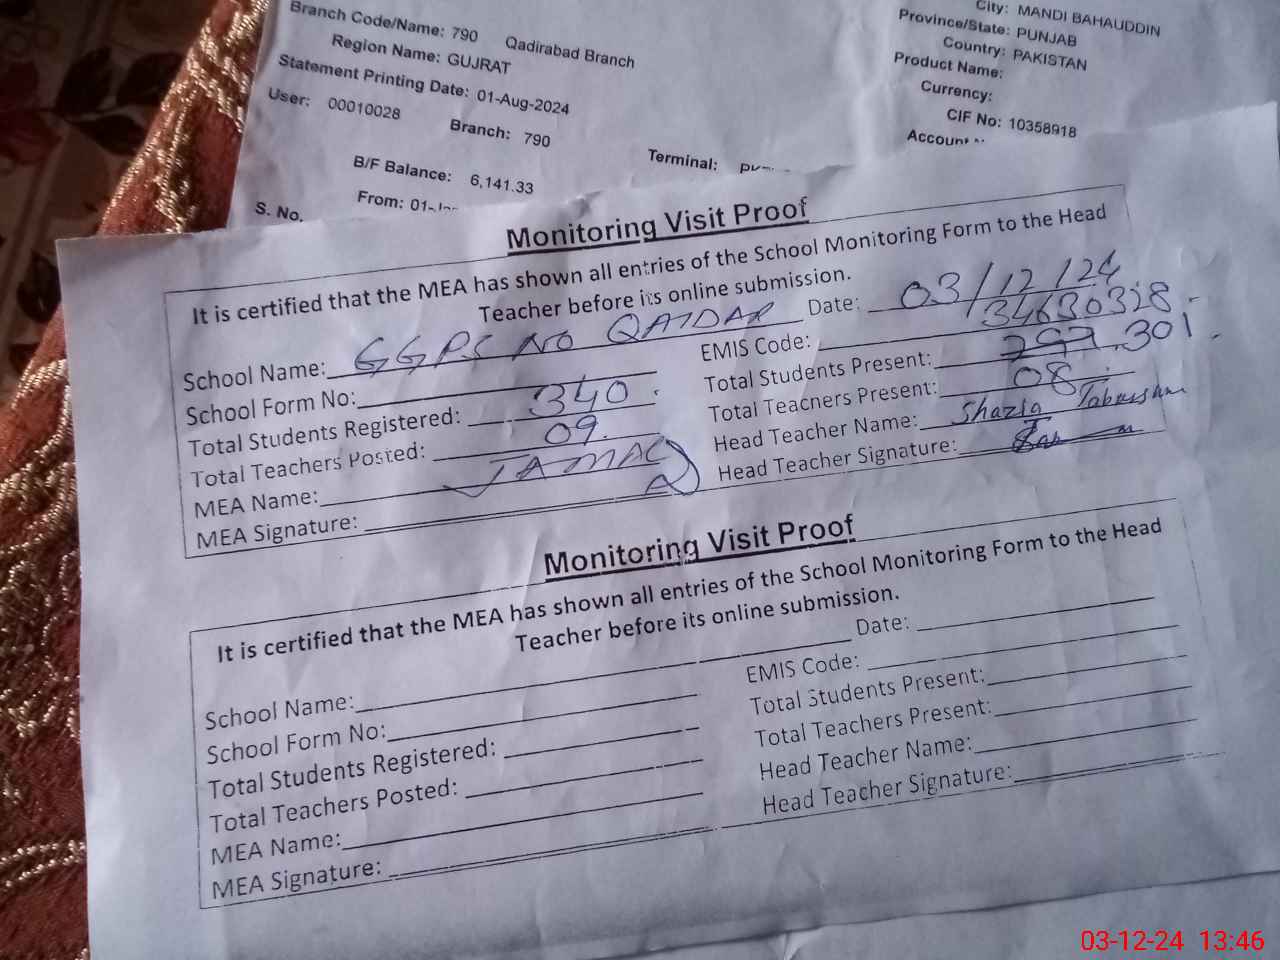 Branch Code/Name: 790 Qadirabad Branch
Region Name: GUJRAT
Statement Printing Date: 01-Aug-2024
User: 00010028 Branch: 790
B/F Balance: 6,141.33 Terminal:
S. No. From:
City: MANDI BAHAUDDIN
Province/State: PUNJAB
Country: PAKISTAN
Product Name:
Currency:
CIF No: 10358918
Account
Monitoring Visit Proof
It is certified that the MEA has shown all entries of the School Monitoring Form to the Head
Teacher before its online submission.
School Name: GGPS NO QAIDAR Date: 03/12/24
School Form No: EMIS Code: 34630328
Total Students Registered: 340 Total Students Present: 297 301
Total Teachers Posted: 09 Total Teachers Present: 08
MEA Name: JAMAL Head Teacher Name: Shazia
MEA Signature: Head Teacher Signature:
Monitoring Visit Proof
It is certified that the MEA has shown all entries of the School Monitoring Form to the Head
Teacher before its online submission.
School Name: Date:
School Form No: EMIS Code:
Total Students Registered: Total Students Present:
Total Teachers Posted: Total Teachers Present:
MEA Name: Head Teacher Name:
MEA Signature: Head Teacher Signature:
03-12-24 13:46